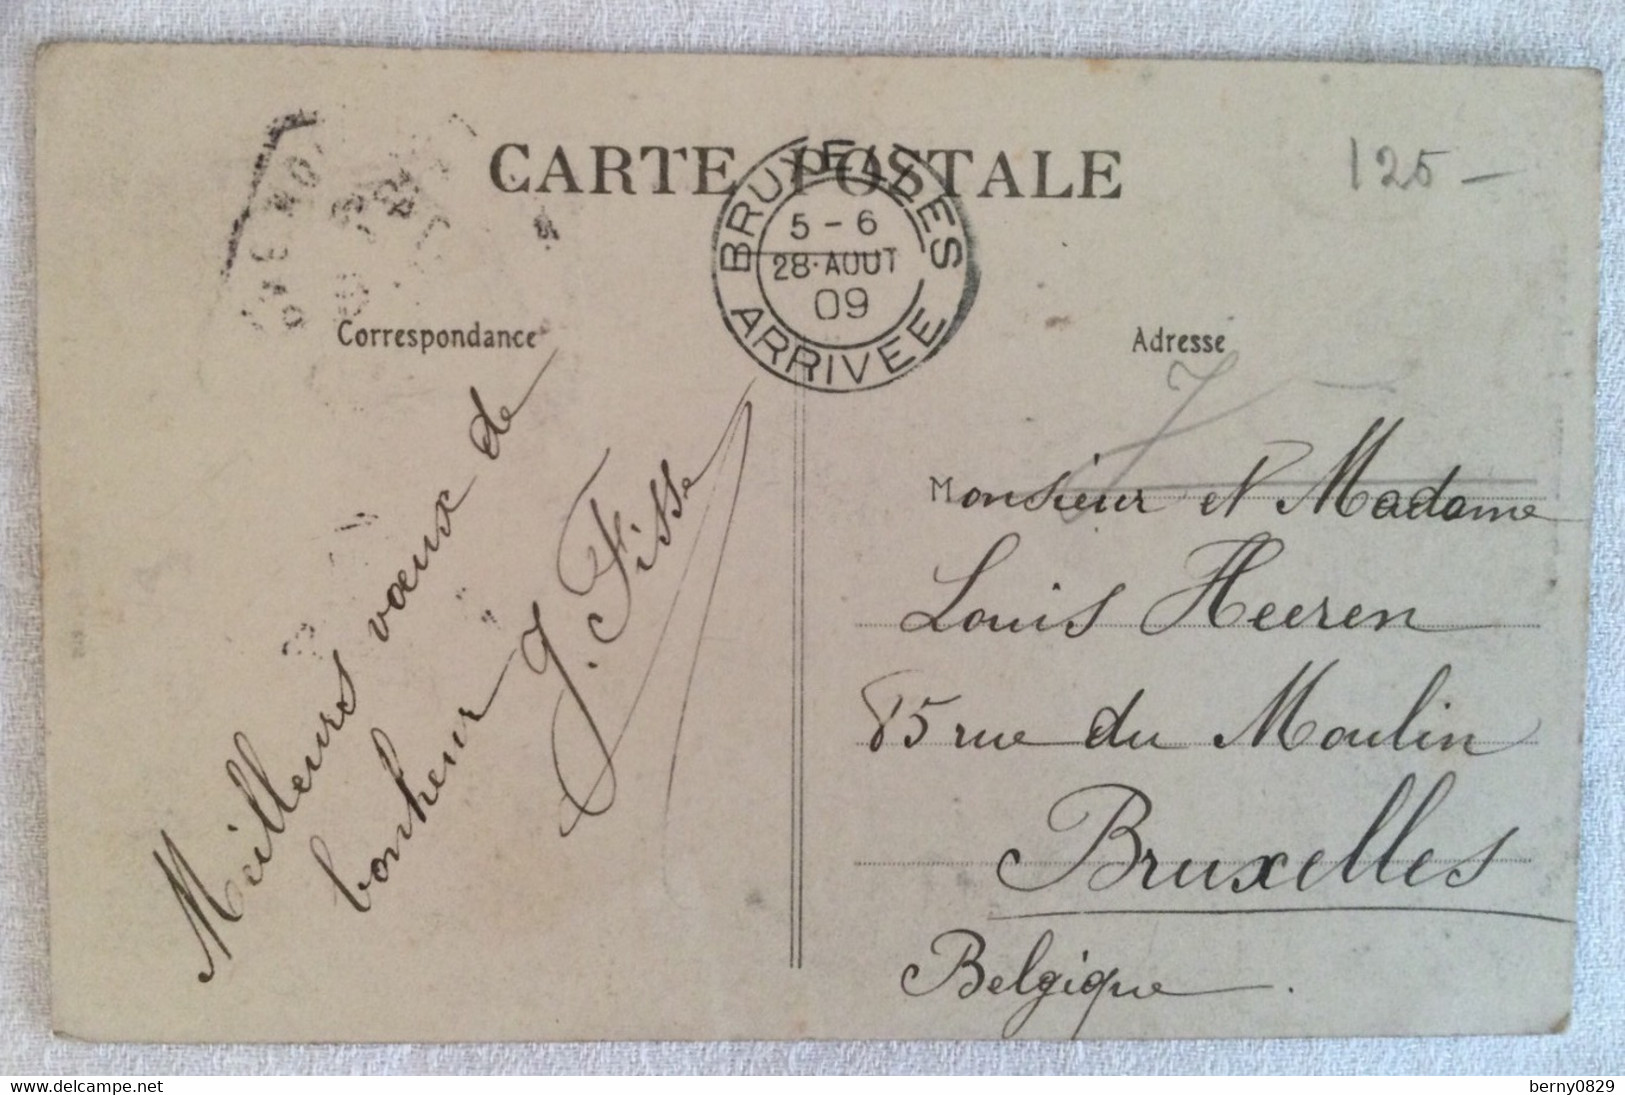 CARTE POSTALE
125 -
BRUXELLES
5 - 6
28·AOUT
09
ARRIVEE
Correspondance
Adresse
Meilleurs vœux de
bonheur J. Fisse
Monsieur et Madame
Louis Heeren
85 rue du Moulin
Bruxelles
Belgique.
delcampe.net
berny0829